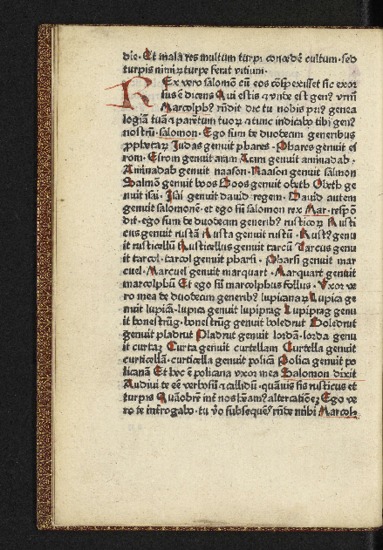 die· Et mala res multum turpi concedẽ cultum· sed
turpis nimiꝝ turpe ferat vitium·
REx vero salomõ cũ eos cõspexisset sic exor
sus ẽ dicens Qui estis ⁊ vnde est genꝰ vr̃m
Marcolphꝰ rñdit dic tu nobis priꝰ genea
logiã tuã ⁊ paretum tuoꝝ ⁊ tunc indicabo tibi genꝰ
nostrũ· salomon· Ego sum de duodecim generibus
ꝓphetaꝝ Judas genuit phares· Phares genuit es
rom· Esrom genuit aram Aram genuit aminadab·
Aminadab genuit naason· Naason genuit salmon
Salmõ genuit boos Boos genuit obeth Obeth ge
nuit isai· Isai genuit dauid regem· Dauid autem
genuit salomonẽ· et ego sũ salomon rex Mar· respõ
dit· ego sum de duodecim generibꝰ rusticoꝝ Rusti
cus genuit rustã Rusta genuit rustũ· Rustꝰ genu
it rusticellũ Rusticellus genuit tarcũ Tarcus genu
it tarcol· tarcol genuit pharsi· Pharsi genuit mar
cuel· Marcuel genuit marquart· Marquart genuit
marcolphũ Et ego sũ marcolphus follus· Vxor ve
ro mea de duodecim generibꝰ lupicanaꝝ Lupica ge
nuit lupicã· lupica genuit lupiprag Lupiprag genu
it bonestrũg· bonestrũg genuit boledrut Boledrut
genuit pladrut Pladrut genuit lordã· lorda genu
it curtaꝫ Curta genuit curtellam Curtella genuit
curticellã· curticella genuit policã Polica genuit po
licanã Et hec ẽ policana vxor mea Salomon dixit
Audiui te eẽ verbosũ ⁊ callidũ· quãuis sis rusticus et
turpis Quãobrẽ int̃ nos hẽam9 altercationẽ Ego ve
ro te introgabo· tu ṽo subsequẽr rñde mihi Marcolꝰ